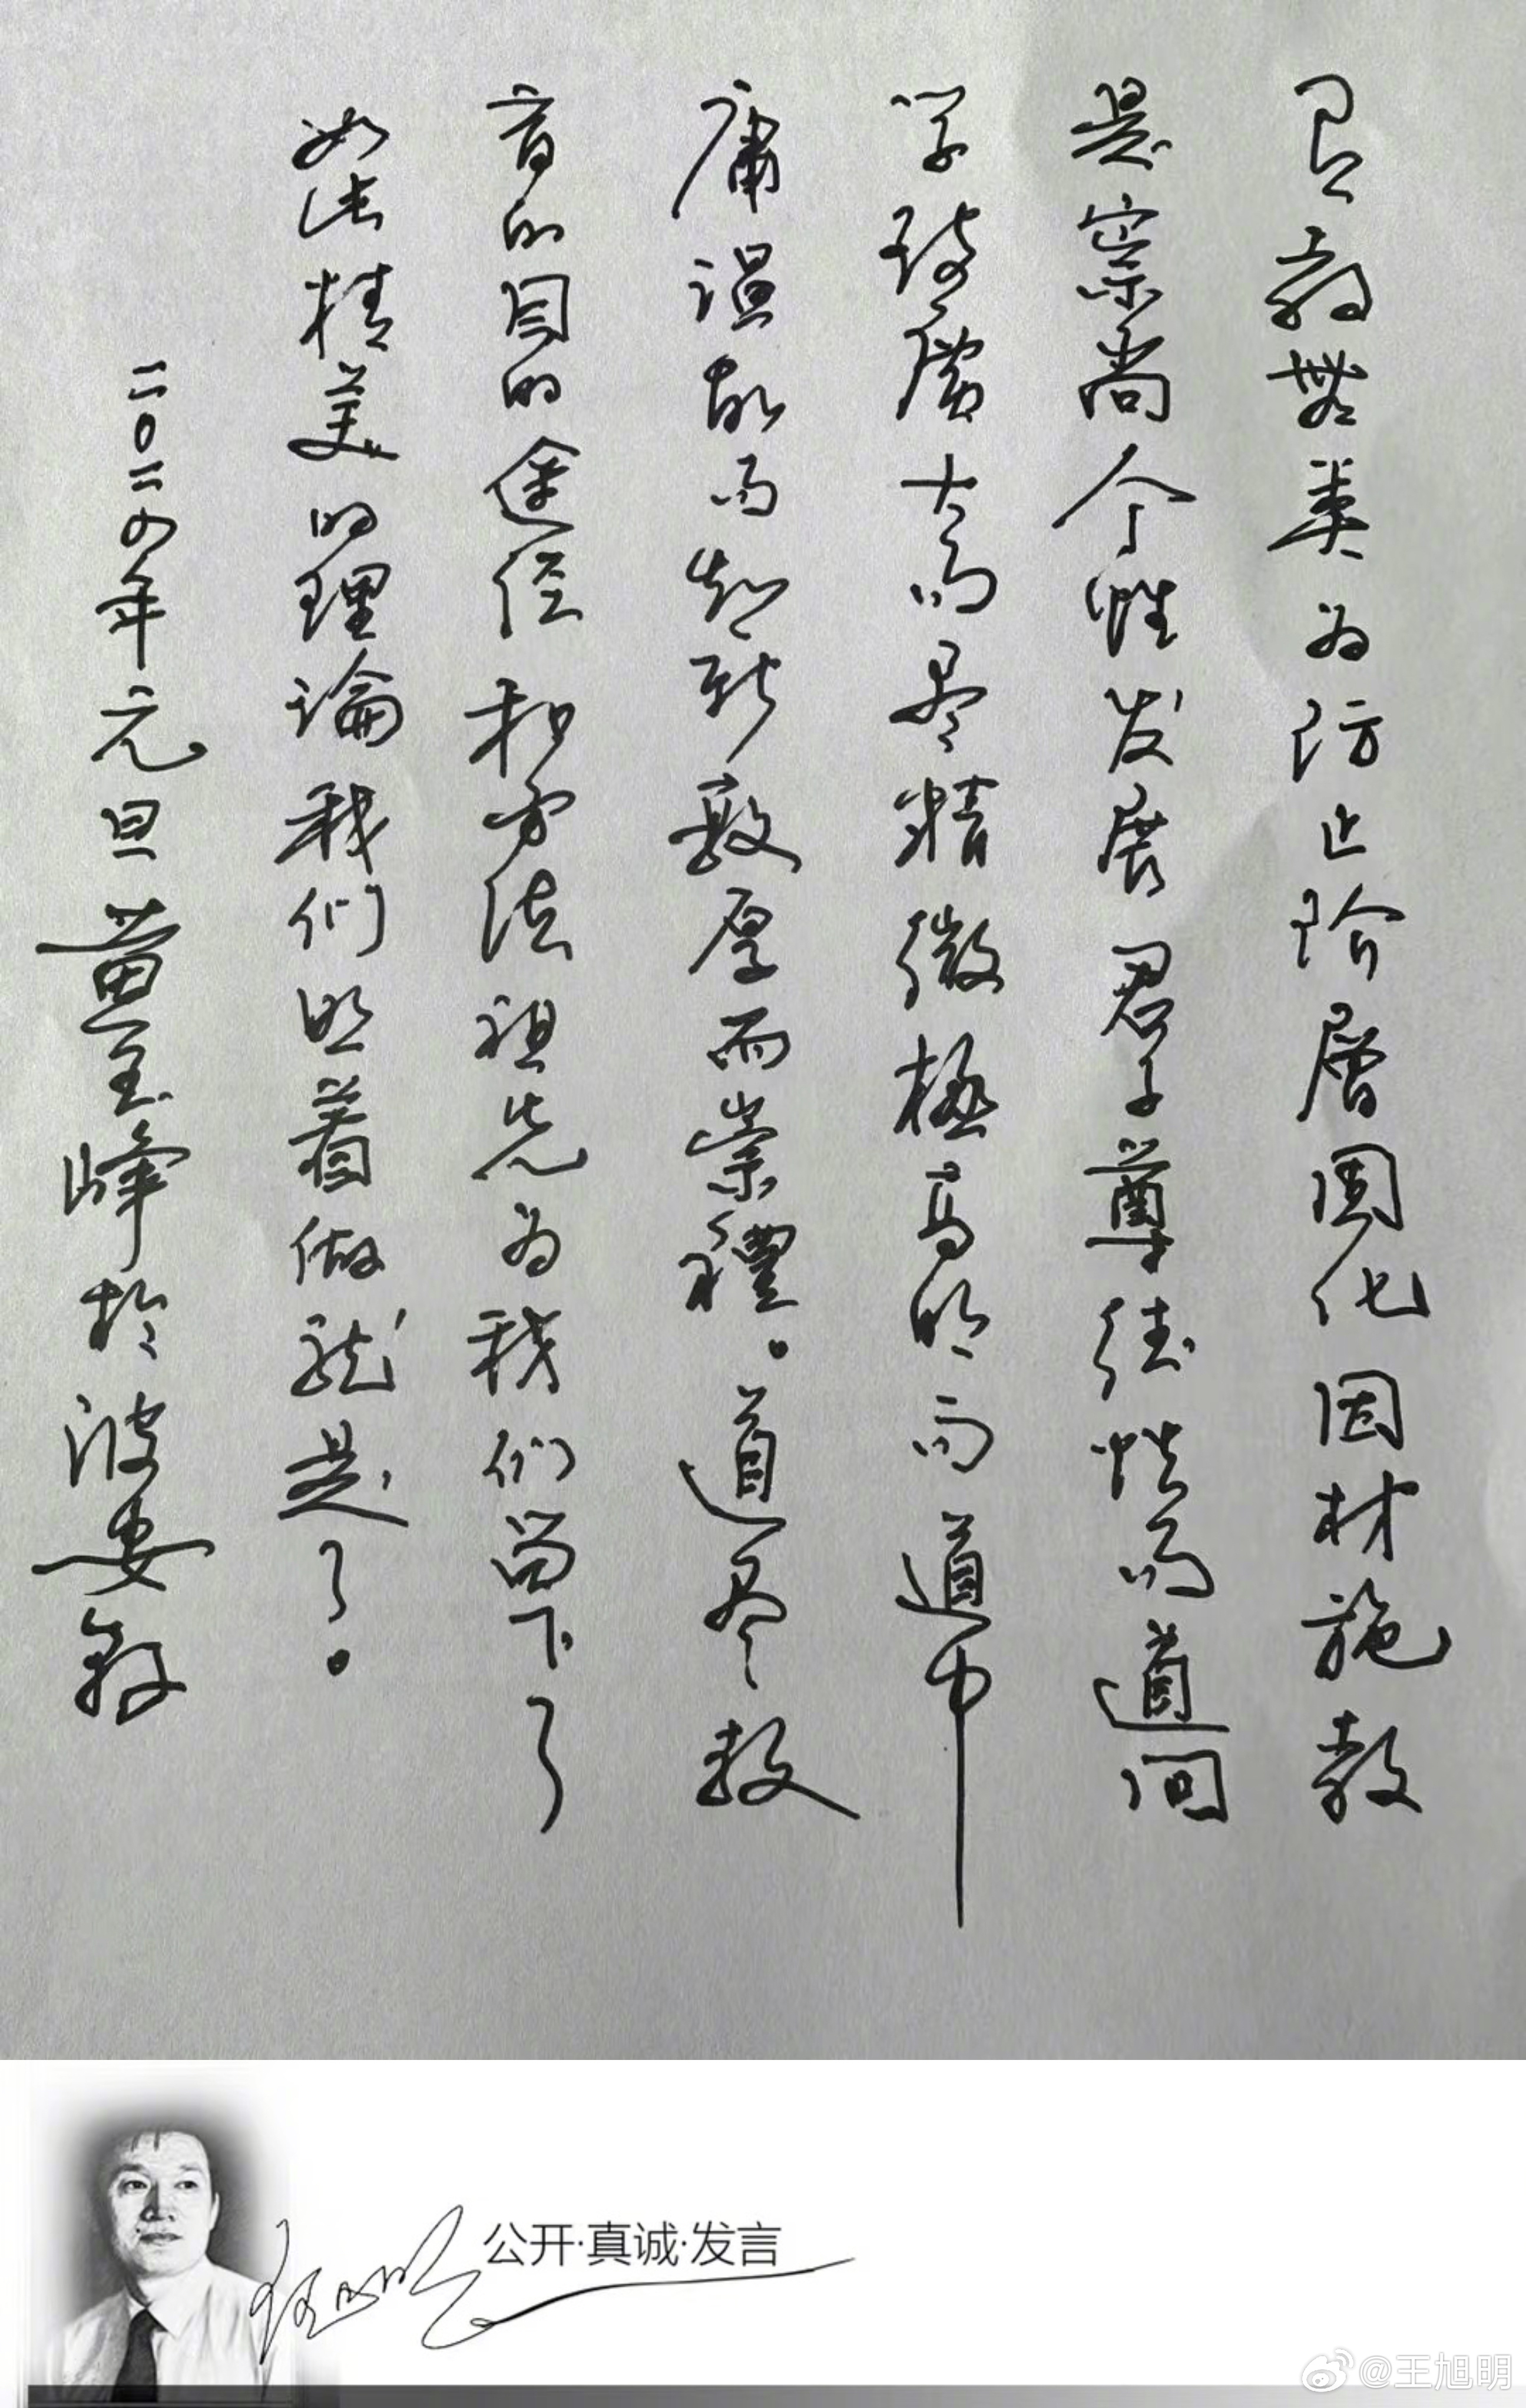 有教無类为防止阶層固化因材施教
是崇尚个性发展君子尊德性而道问
学致廣大而尽精微極高明而道中
庸温故而知新敦厚而崇禮。道尽教
育的目的途径和方法祖先为我们留下了
如此精美的理論我们照着做就是了。
二〇二四年元旦黄玉峰於波士敦
公开·真诚·发言
@王旭明